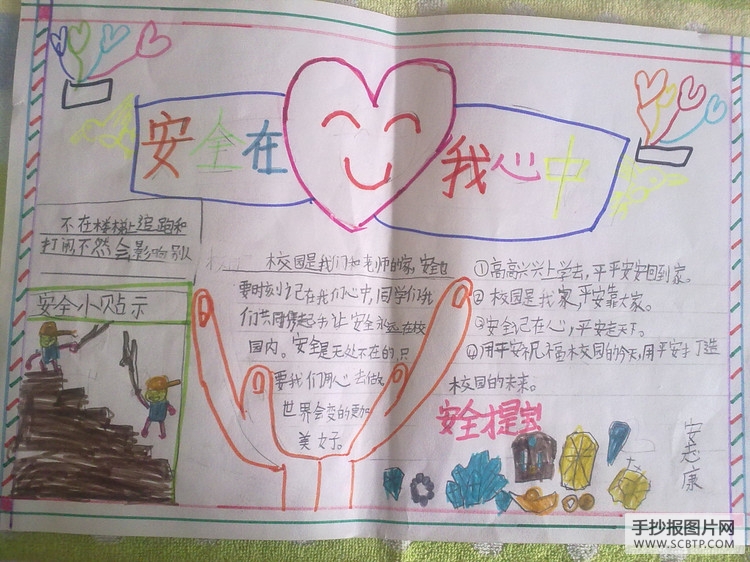 安全在
我心中
不在楼梯上追跑和
打闹不然会影响别人
安全小贴示
校园是我们和老师的家,安全也
要时刻记在我们心中,同学们我
们共同携起手让安全永远在校
园内。安全是无处不在的,只
要我们用心去做,
世界会变的更加
美好。
①高高兴兴上学去,平平安安回到家。
②校园是我家,平安靠大家。
③安全记在心,平安走天下。
④用平安祝福校园的今天,用平安打造
校园的未来。
安全提宝
安志康
手抄报图片网
WWW.SCBTP.COM